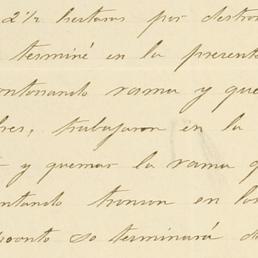 2½ hectaras por destron
terminé en la present
ontonando rama y que
res, trabajaron en la
y quemar la rama q
ntando tronson en los
pronto se terminará d